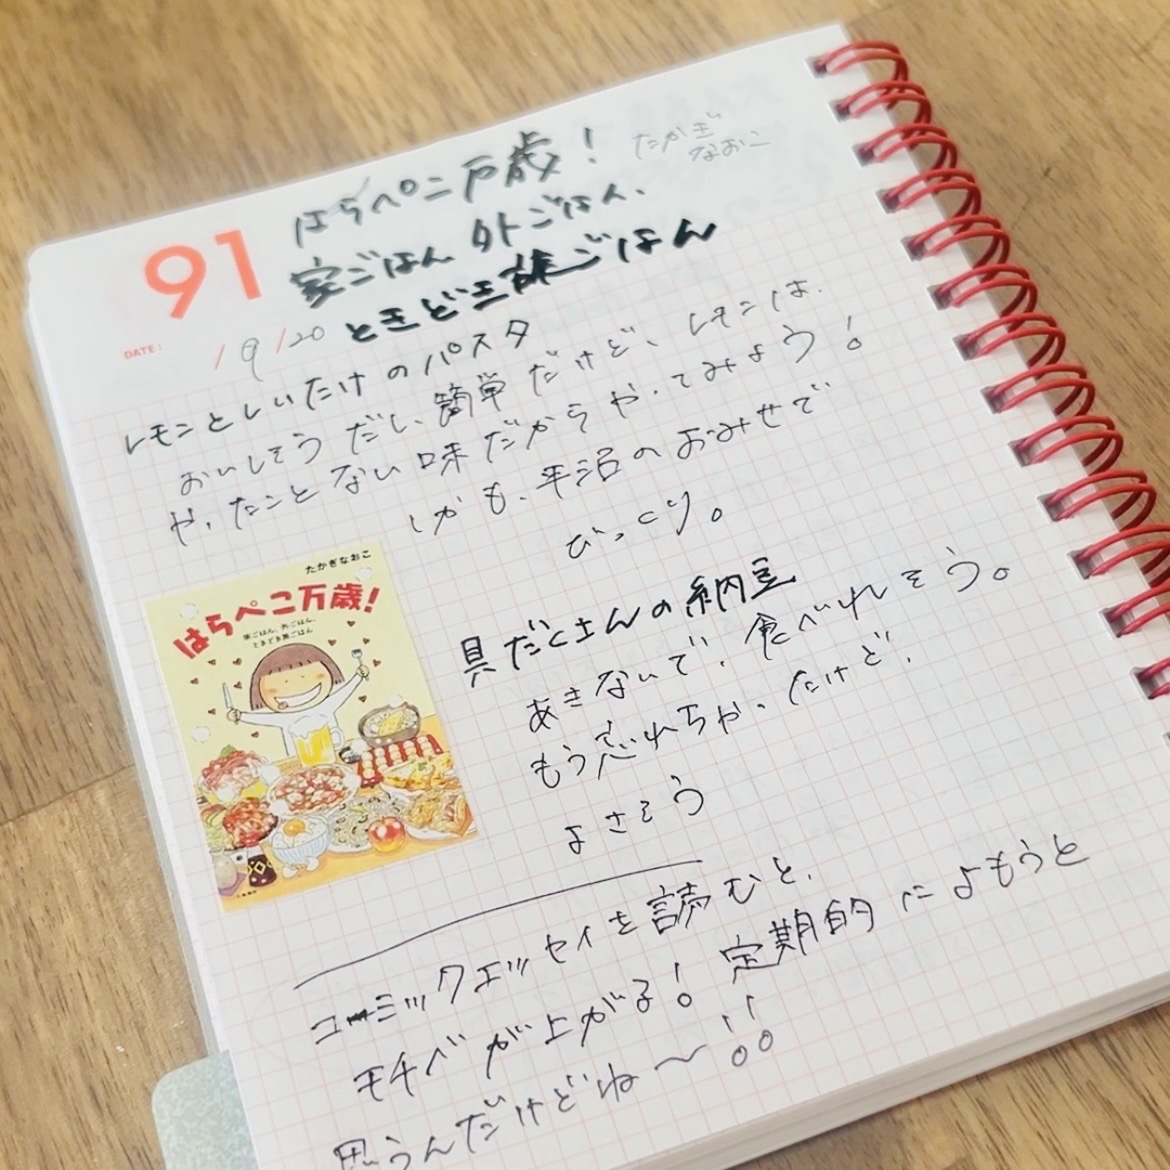 はらペこ万歳！
たかぎ
なおこ
家ごはん 外ごはん、
ときどき旅ごはん
91
DATE: /9/20
レモンとしいたけのパスタ
おいしそうだし、簡単だけど、レモンは、
やったことない味だからやってみよう！
しかも、平沼のおみせで
びっくり。
たかぎなおこ
はらぺこ万歳！
家ごはん、外ごはん、
ときどき旅ごはん
具だくさんの納豆
あきないで、食べれそう。
もう忘れちゃったけど、
よさそう
コーミックエッセイを読むと、
モチベが上がる！定期的によもうと
思うんだけどね〜!!